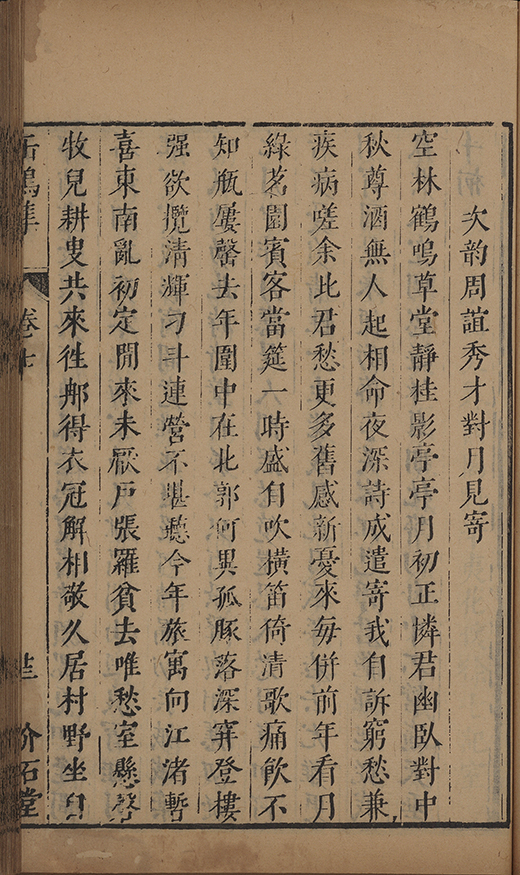 次韵周誼秀才對月見寄
空林鶴鳴草堂靜桂影亭亭月初正憐君幽臥對中
秋尊酒無人起相命夜深詩成遣寄我自訴窮愁兼
疾病嗟余此君愁更多舊感新憂來每併前年看月
綠茗園賓客當筵一時盛自吹橫笛倚清歌痛飲不
知瓶屢罄去年圍中在北郭何異孤豚落深穽登樓
强欲攬清輝刁斗連營不堪聽今年旅寓向江渚暫
喜東南亂初定閒來未厭戶張羅貧去唯愁室懸磬
牧兒耕叟共來徃那得衣冠解相敬久居村野坐自
卷七
竹石堂